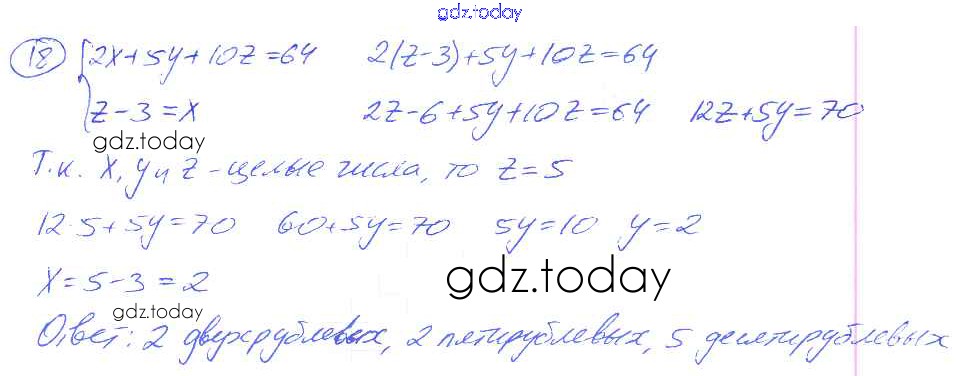 gdz.today
18 2x+5y+10z=64 2(z-3)+5y+10z=64
z-3=x 2z-6+5y+10z=64 12z+5y=70
gdz.today
Т.к. x, y и z - целые числа, то z=5
12·5+5y=70 60+5y=70 5y=10 y=2
x=5-3=2
gdz.today
gdz.today
Ответ: 2 двухрублевых, 2 пятирублевых, 5 десятирублевых